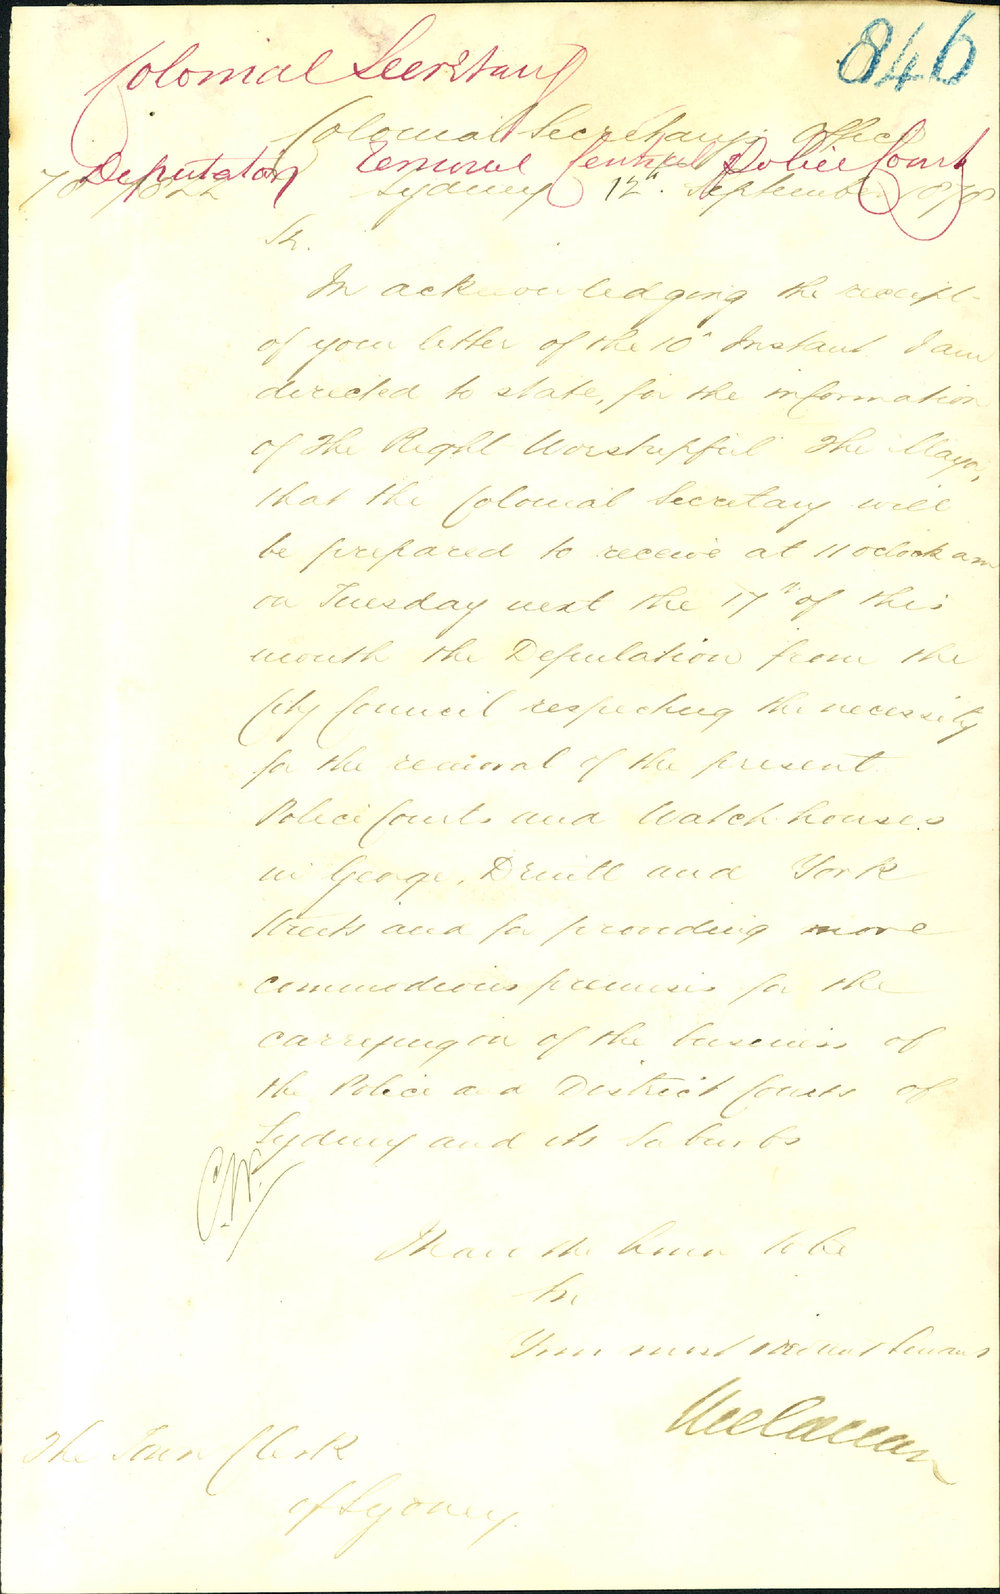 Colonial Secretary
846
Colonial Secretary's Office
Deputation Removal Central Police Court
Sydney 12th September 1878
Sir.
In acknowledging the receipt
of your letter of the 10th Instant I am
directed to state, for the information
of The Right Worshipful The Mayor,
that the Colonial Secretary will
be prepared to receive at 11 oclock am
on Tuesday next the 17th of this
month the Deputation from the
City Council respecting the necessity
for the removal of the present
Police Courts and Watch-houses
in George, Druitt and York
Streets and for providing more
commodious premises for the
carrying on of the business of
the Police and District Courts of
Sydney and its Suburbs
C.W.
I have the honor to be
Sir
Your most obedient Servant
The Town Clerk
of Sydney.